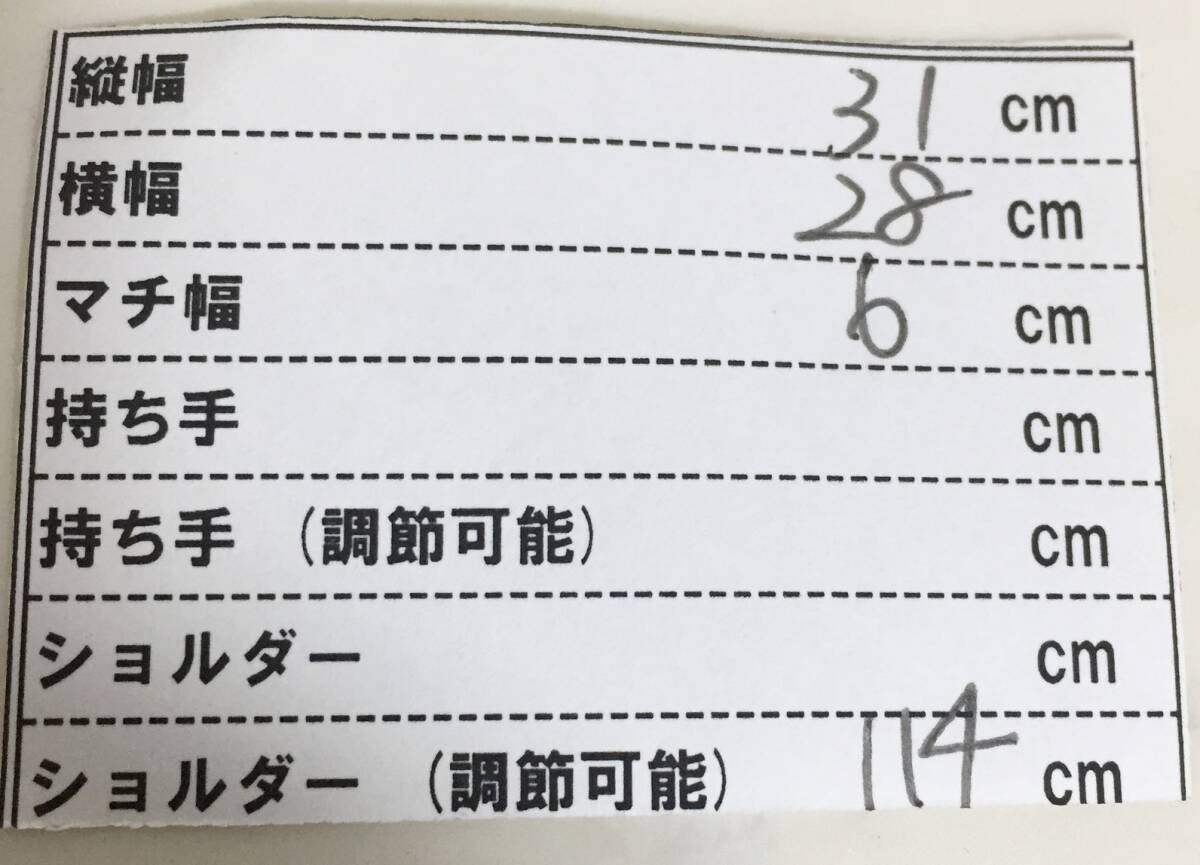 縦幅 31 cm
横幅 28 cm
マチ幅 6 cm
持ち手 cm
持ち手 (調節可能) cm
ショルダー cm
ショルダー (調節可能) 114 cm